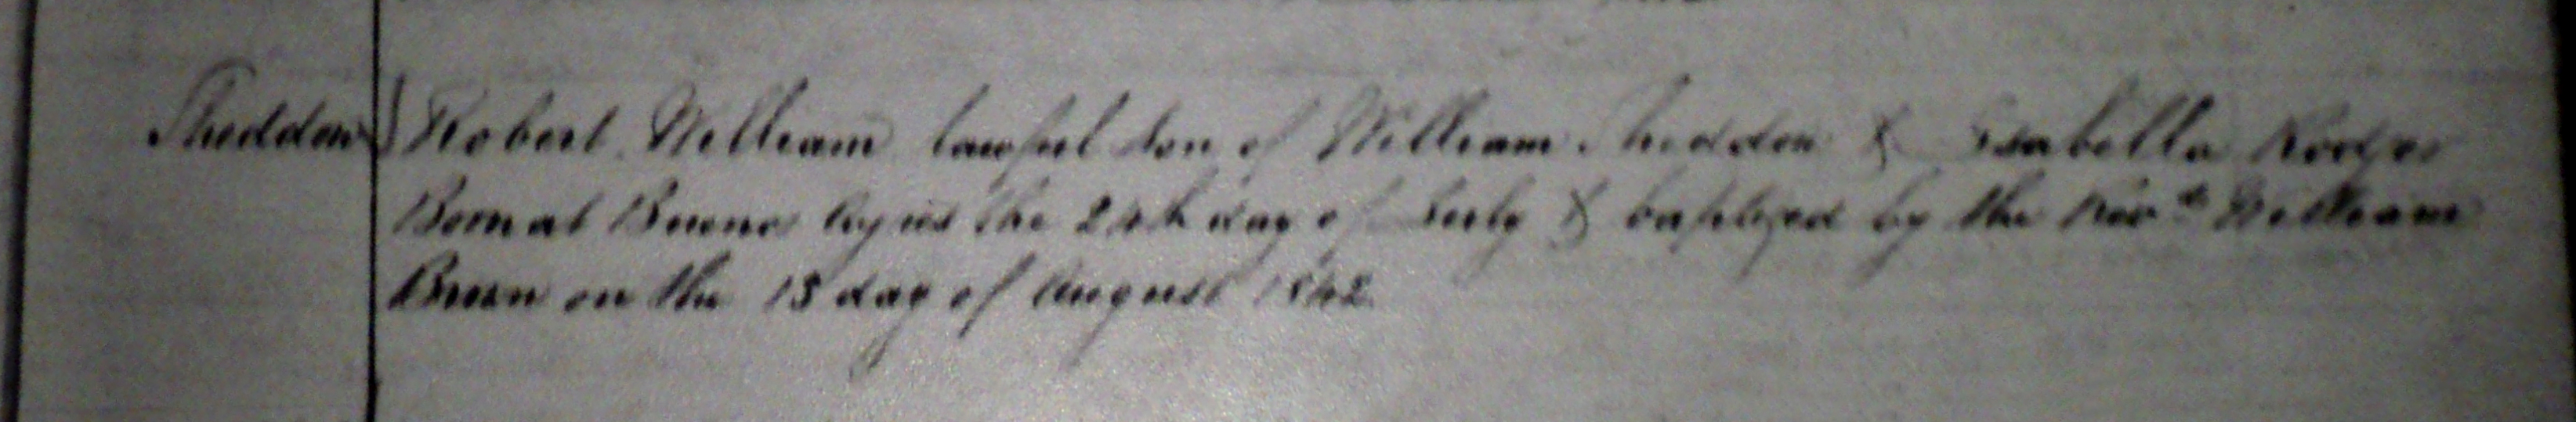 Shedden Robert William lawful son of William Shedden & Isabella Rodger
Born at Buenos Ayres the 24th day of July & baptized by the Revd. William
Brown on the 13 day of August 1842